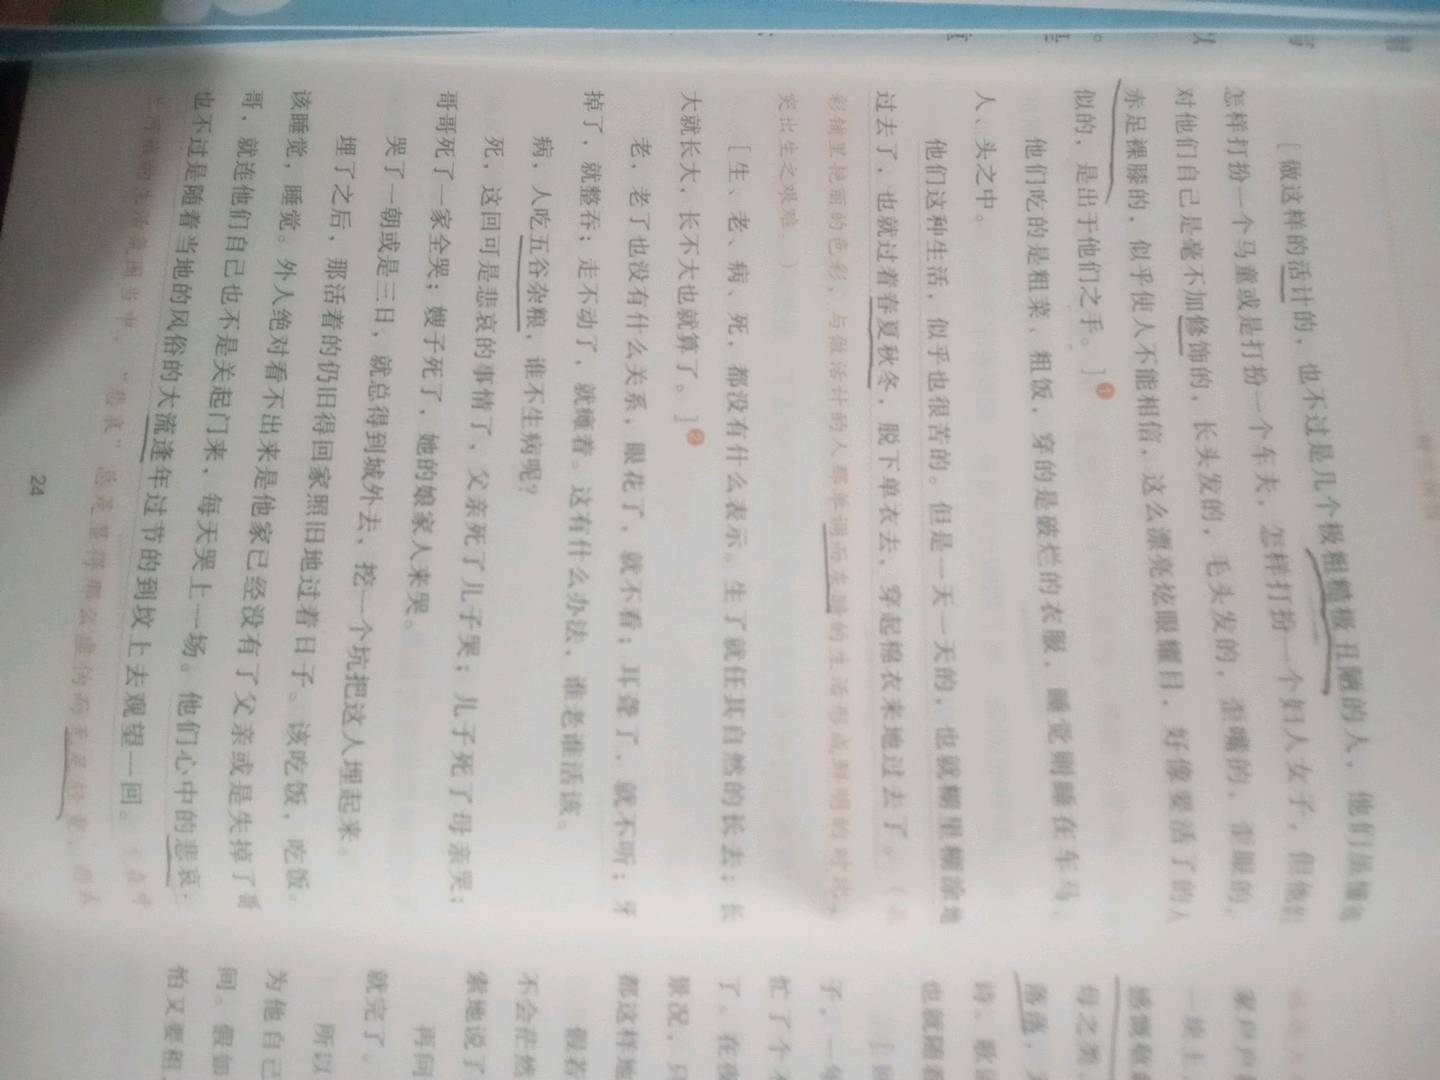 ［做这样的活计的，也不过是几个极粗糙极丑陋的人，他们虽懂得
怎样打扮一个马童或是打扮一个车夫，怎样打扮一个妇人女子，但他们
对他们自己是毫不加修饰的，长头发的，毛头发的，歪嘴的，歪眼的，
赤足裸膝的，似乎使人不能相信，这么漂亮炫眼耀目，好像要活了的人
似的，是出于他们之手。］❶
他们吃的是粗菜、粗饭，穿的是破烂的衣服，睡觉则睡在车马、
人、头之中。
他们这种生活，似乎也很苦的。但是一天一天的，也就糊里糊涂地
过去了，也就过着春夏秋冬，脱下单衣去，穿起棉衣来地过去了。（
彩铺里艳丽的色彩，与做活计的人那单调而 的生活形成鲜明的对比，
突出生之艰难 ）
［生、老、病、死，都没有什么表示。生了就任其自然的长去；长
大就长大，长不大也就算了。］❷
老，老了也没有什么关系，眼花了，就不看；耳聋了，就不听；牙
掉了，就整吞；走不动了，就瘫着。这有什么办法，谁老谁活该。
病，人吃五谷杂粮，谁不生病呢？
死，这回可是悲哀的事情了，父亲死了儿子哭；儿子死了母亲哭；
哥哥死了一家全哭；嫂子死了，她的娘家人来哭。
哭了一朝或是三日，就总得到城外去，挖一个坑把这人埋起来。
埋了之后，那活着的仍旧得回家照旧地过着日子。该吃饭，吃饭。
该睡觉，睡觉。外人绝对看不出来是他家已经没有了父亲或是失掉了哥
哥，就连他们自己也不是关起门来，每天哭上一场。他们心中的悲哀，
也不过是随着当地的风俗的大流逢年过节的到坟上去观望一回。（在呼
生活氛围当中，“悲哀”总是显得那么虚伪而
24
家户户
一块土
感慨敬
母之类，
落落，
诗、歌
也就随着
子，一年
忙了个不
了。在夜
景况，只
都这样地
假若
不会茫然
索地说了
再问
就完了。
所以
为他自己
问。假如
怕又要租